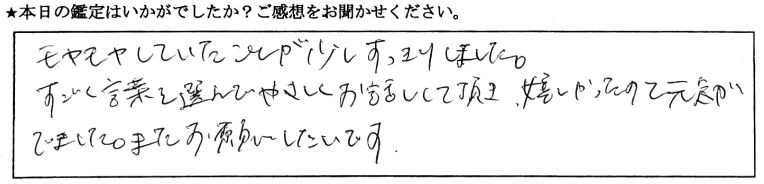 ★本日の鑑定はいかがでしたか？ご感想をお聞かせください。
モヤモヤしていた心が少しすっきりしました。
すごく言葉を選んでやさしくお話しして頂き、嬉しかったので元気が
でました。またお願いしたいです.